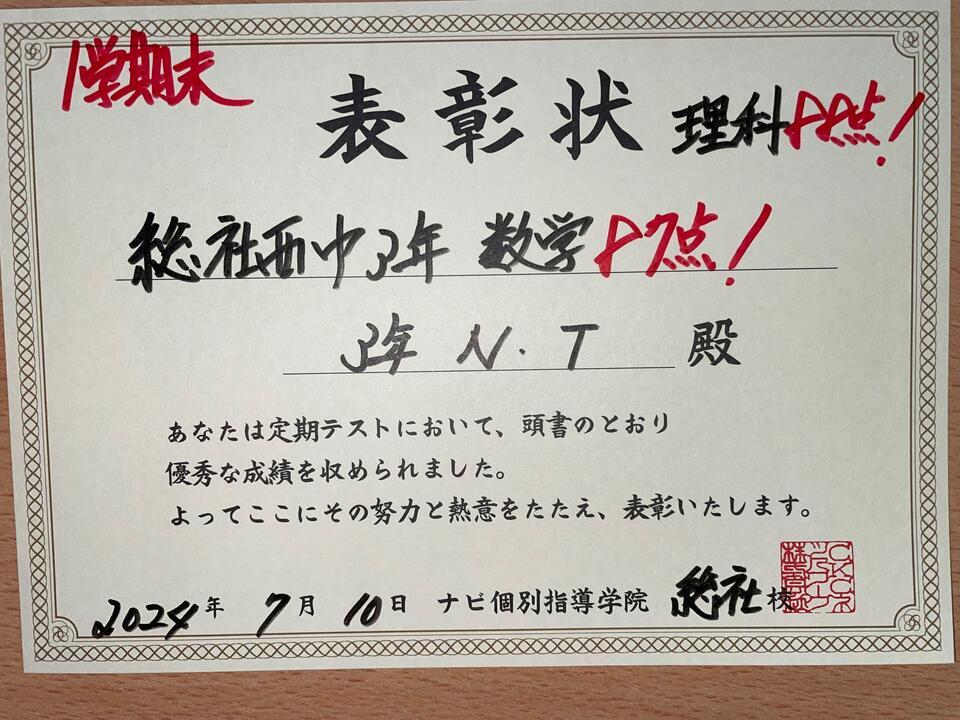 1学期末
表彰状 理科88点!
総社西中3年 数学87点!
3年 N.T 殿
あなたは定期テストにおいて、頭書のとおり
優秀な成績を収められました。
よってここにその努力と熱意をたたえ、表彰いたします。
2024年 7月 10日 ナビ個別指導学院 総社校